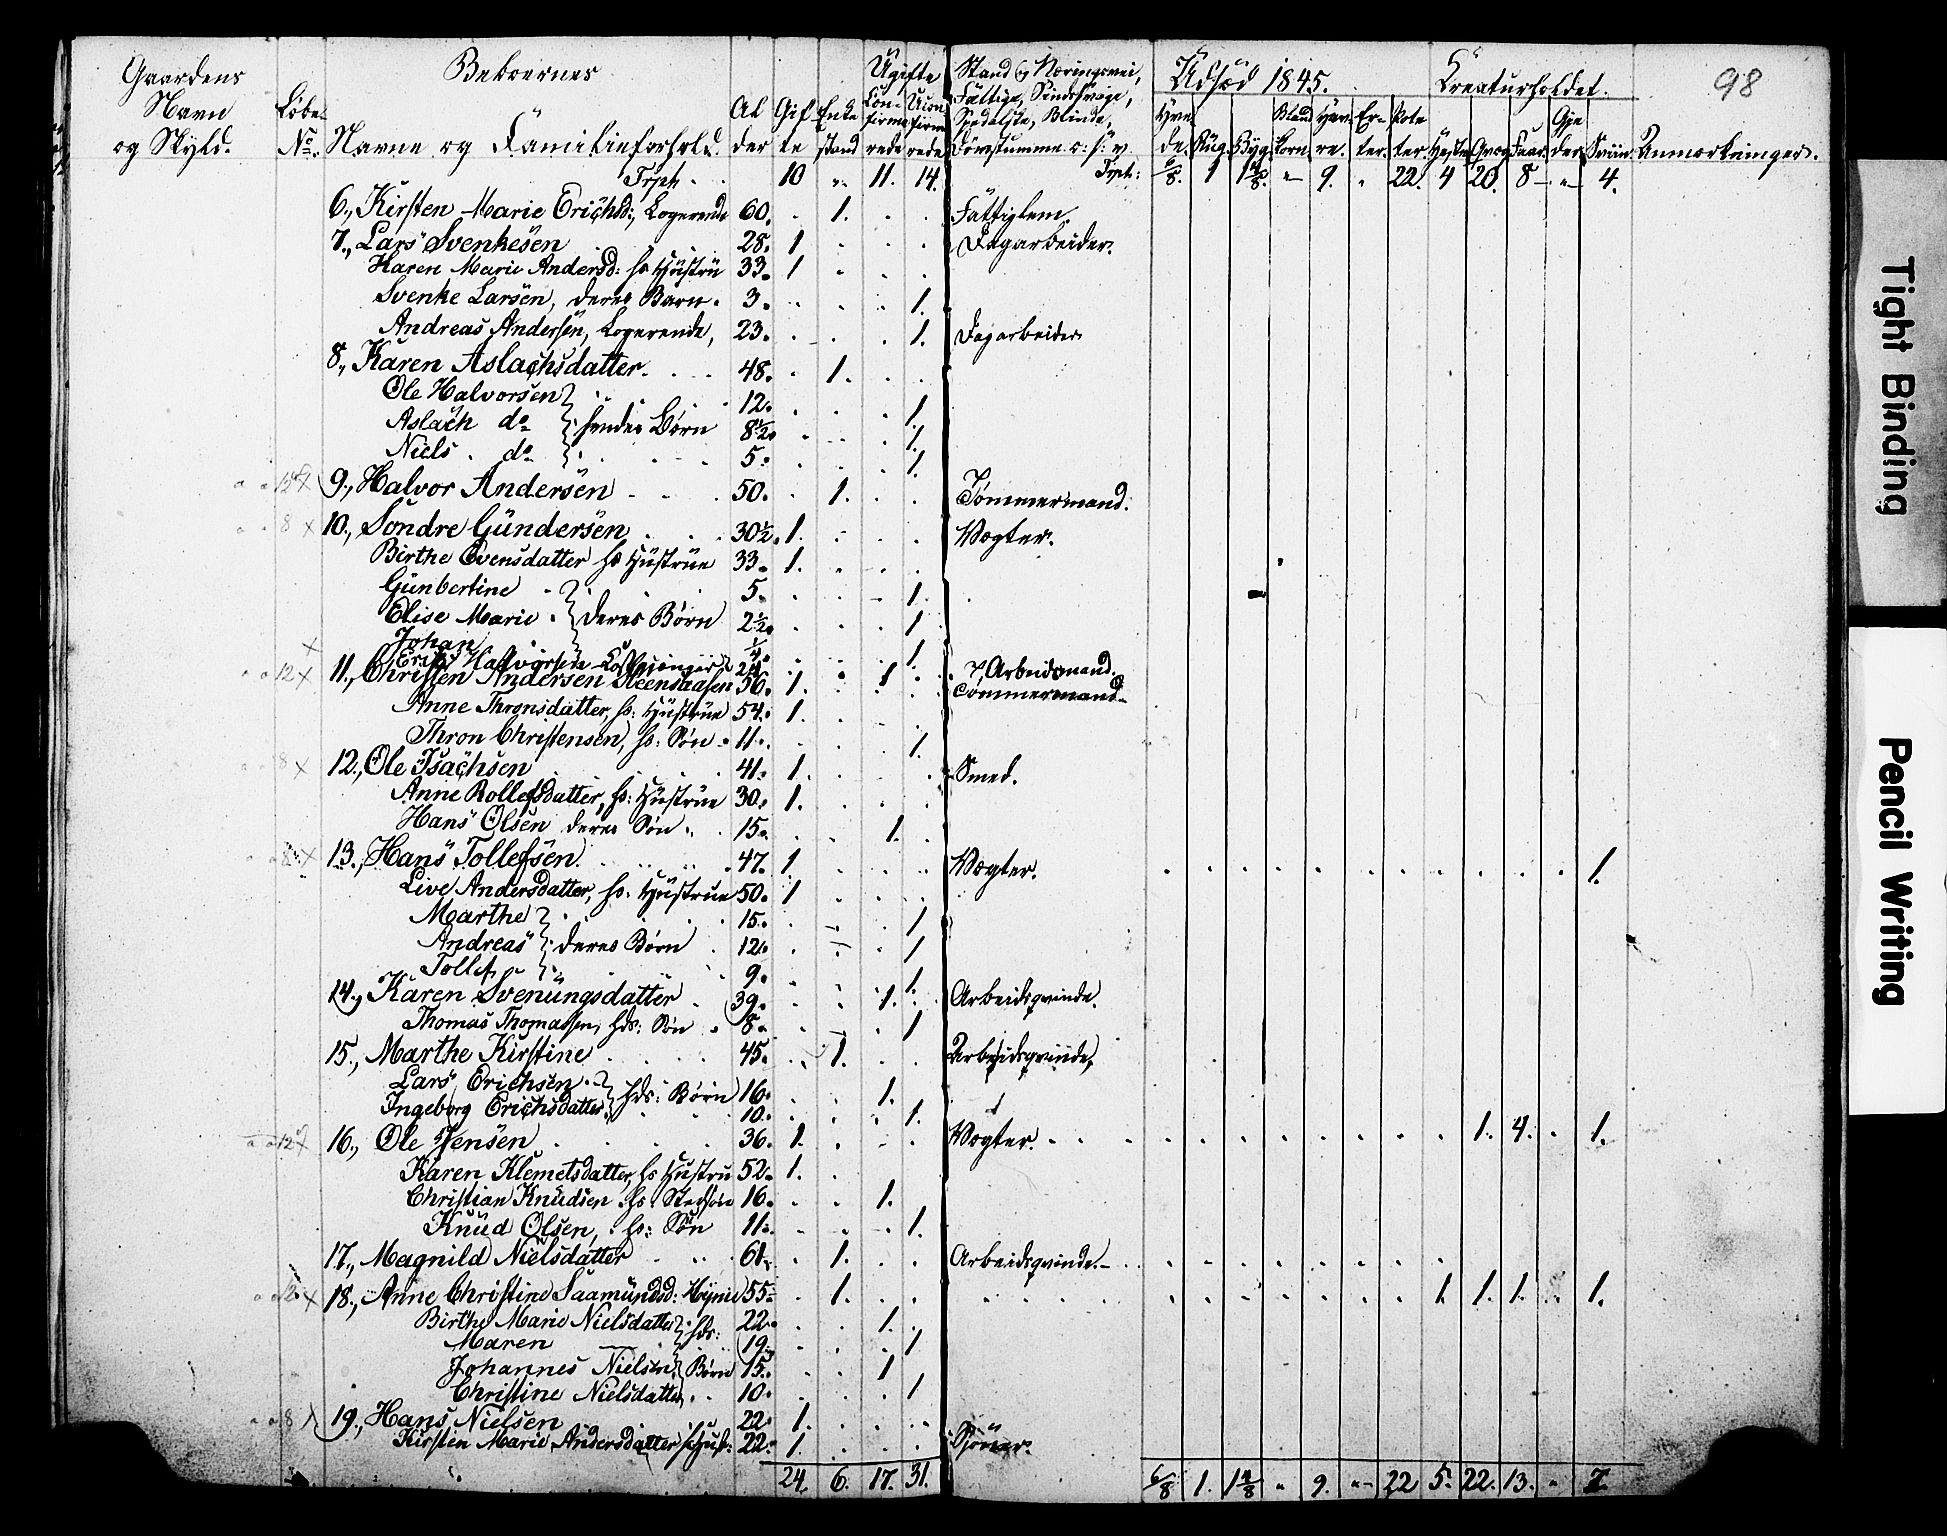 98
Gaardens Navn og Skyld. Løbe No. Beboernes Navne og Familieforhold. Alder Gifte Enkestand Ugifte Confirmerede Uconfirmerede Stand og Næringsvei, Fattige, Sindssvage, Spedalske, Blinde, Døvstumme o: s: v. Udsæd 1845. Hvede. Rug. Byg. Bland korn. Havre. Erter. Poteter. Creaturholdet. Heste Qvæg Faar Gjeder Sviin. Anmærkninger.
Trsp: 10 " 11. 14. Trsp: 6/8. 1 1 4/8. " 9. " 22. 4 20. 8 " 4.
6., Kirsten Marie Erichsd:, Logerende 60. 1. Fattiglem.
7., Lars Svenkesen 28. 1 Dagarbeider.
Karen Marie Andersd: hs Hustru 33. 1
Svenke Larsen, deres Barn. 3. 1.
Andreas Andersen, Logerende, 23. 1. Dagarbeider
8., Karen Aslachsdatter 48. 1.
Ole Halvorsen 12. 1.
Aslach do hendes Børn 8½ 1.
Niels do 5. 1.
12 x 9., Halvor Andersen 50. 1. Tømmermand.
8 x 10., Sondre Gundersen 30½. 1. Vægter.
Birthe Evensdatter hs Hustrue 33. 1.
Gunbertine 5. 1.
Elise Marie deres Børn 2½ 1
x Johan ¼. 1
Erik Halvorsen 24. 1 Arbeidsmand.
12 x 11., Christen Andersen 56. 1. Tømmermand
Anne Thronsdatter, hs: Hustrue 54. 1.
Thron Christensen, hs: Søn 11. 1.
8 x 12., Ole Isachsen 41. 1. Smed.
Anne Rollefsdatter, hs: Hustrue 30. 1.
Hans Olsen deres Søn 15. 1.
8 x 13., Hans Tollefsen 47. 1 Vægter. 1.
Live Andersdatter, hs: Hustrue 50. 1
Marthe 15. 1
Andreas deres Børn 12. 1
Tollef 9. 1.
14., Karen Svenungsdatter 39. 1. Arbeidsqvinde.
Thomas Thomassen, hds: Søn 8. 1
15., Marthe Kirstine 45. 1. Arbeidsqvinde,
Lars Erichsen hds: Børn 16. 1.
Ingeborg Erichsdatter 10. 1.
12 x 16., Ole Jensen 36. 1. Vægter 1. 4. 1.
Karen Klemetsdatter, hs Hustru 52. 1.
Christian Knudsen hs: Stedsøn 16. 1.
Knud Olsen, hs: Søn 11. 1.
17., Magnild Nielsdatter 61. 1. Arbeidsqvinde.
12 x 18., Anne Christine Saamundsd: 55 1. 1. 1. 1. 1.
Birthe Marie Nielsdatter hds: 22. 1.
Maren 19. 1
Johannes Nielsen Børn 15. 1
Christine Nielsdatter 10. 1
8 x 19., Hans Nielsen 22. 1.
Kirsten Marie Andersdatter hs Hust: 22. 1.
24. 6. 17. 31. 6/8 1. 1 4/8 " 9. " 22 5. 22. 13. " 7.
Tight Binding
Pencil Writing